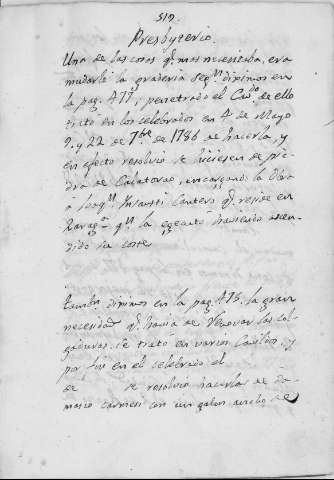 519.
Presbyterio.
Una de las cosas q.e mas necesitaba, era
mudarle la graderia seg.n diximos en
la pag. 477, penetrado el Cav.do de ello
trató en los celebrados en 4 de Mayo
y 22 de 7bre de 1786 de hacerla, y
en efecto resolvió se hiciesen de pie
dra de Calatorao, encargando la obra
á Joaq.n Cantero q.e reside en
Zarag.a q.n la egecutó haviendo ascen
dido su coste
tambn. diximos en la pag. 475. la gran
necesidad q.e havia de renovar las col
gaduras. Se trató en varios Cavildos, y
por fin en el celebrado el
de se resolvió hacerlas de Da
masco carmesi con un galon ancho de